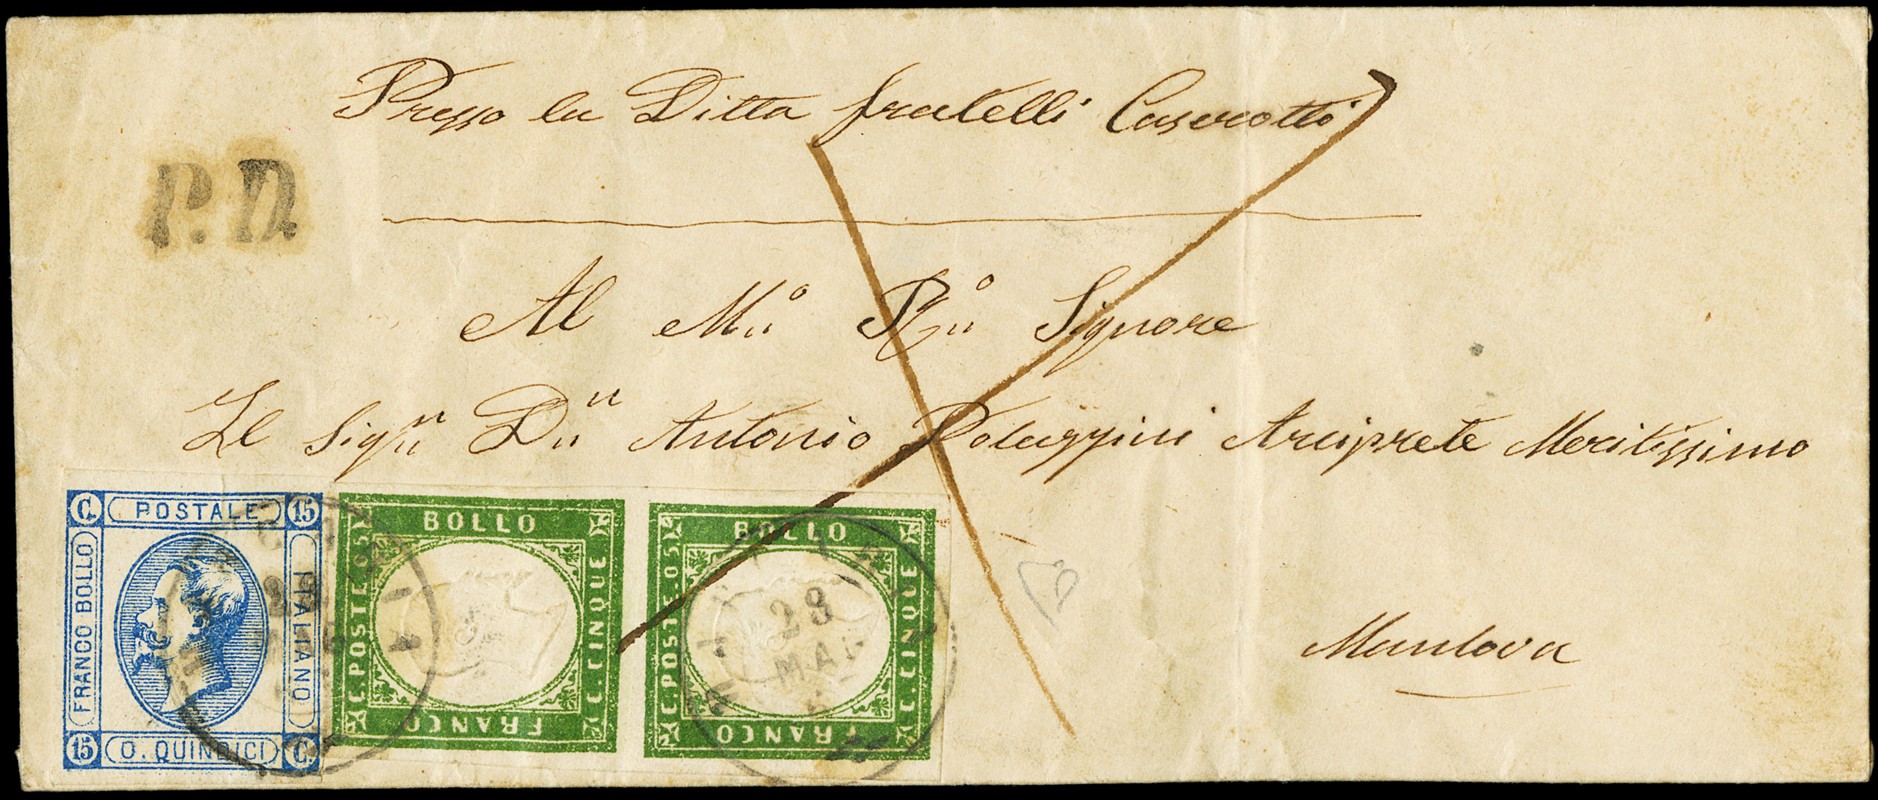 Presso la Ditta fratelli Caserotti
P.D.
Al M.º R.º Signore
Il Sig.n D.n Antonio Arciprete Meritissimo
Mantova
C. POSTALE 15
FRANCO BOLLO
ITALIANO
15 C. QUINDICI C.
BOLLO
C. POSTE. 05
C. CINQUE
FRANCO
BOLLO
C. POSTE. 05
C. CINQUE
FRANCO
28
MAG